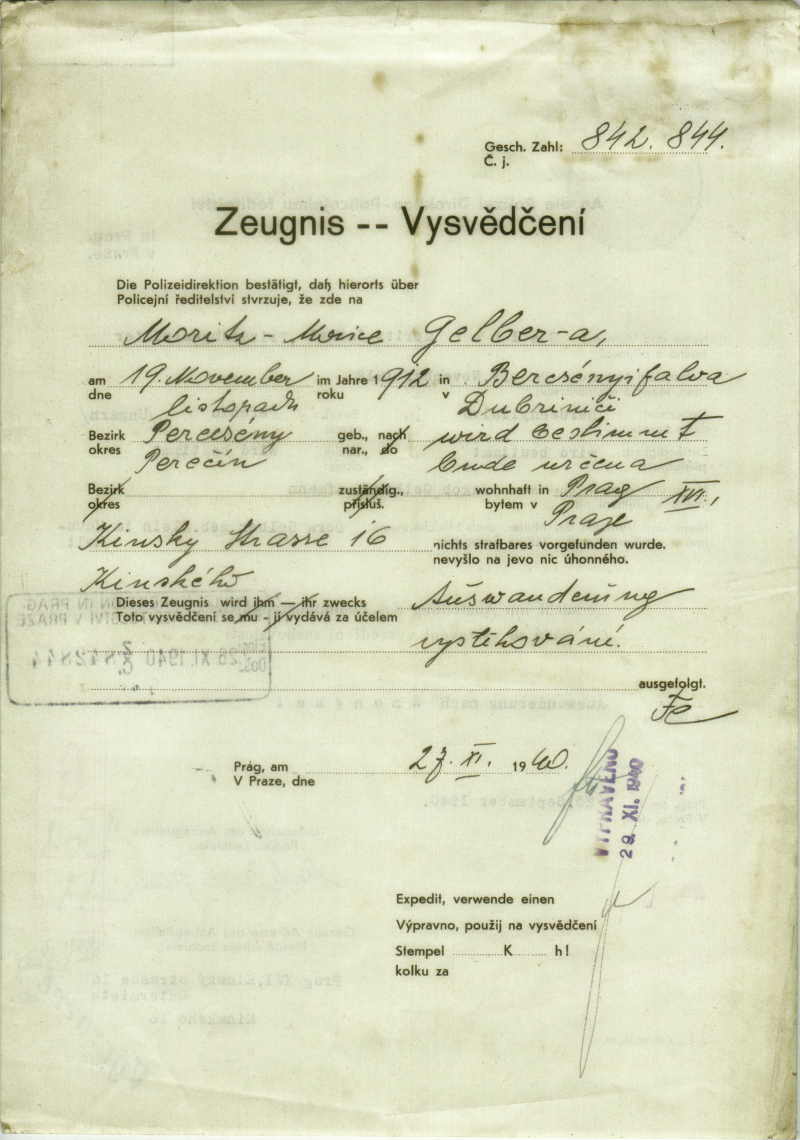 Gesch. Zahl: 842.844.
Č. j.
Zeugnis -- Vysvědčení
Die Polizeidirektion bestätigt, daß hierorts über
Policejní ředitelství stvrzuje, že zde na
Moritz - Morice Gelber-a,
am 19. November im Jahre 1912 in Bercsényifalva
dne listopadu roku v Dubriniči
Bezirk Perecsény geb., nach wird bestimmt
okres Perečín nar., do bude určena
Bezirk zuständig., wohnhaft in Prag XVI.,
okres přísluš. bytem v Praze
Kinsky Strasse 16 nichts strafbares vorgefunden wurde.
Kinského nevyšlo na jevo nic úhonného.
Dieses Zeugnis wird ihm — ihr zwecks Auswanderung
Toto vysvědčení se mu - jí vydává za účelem
vystěhování.
ausgefolgt.
Prág, am 27. XI. 1940.
V Praze, dne
VYPRAVENO
29. XI. 1940
Expedit, verwende einen
Výpravno, použij na vysvědčení
Stempel K h!
kolku za